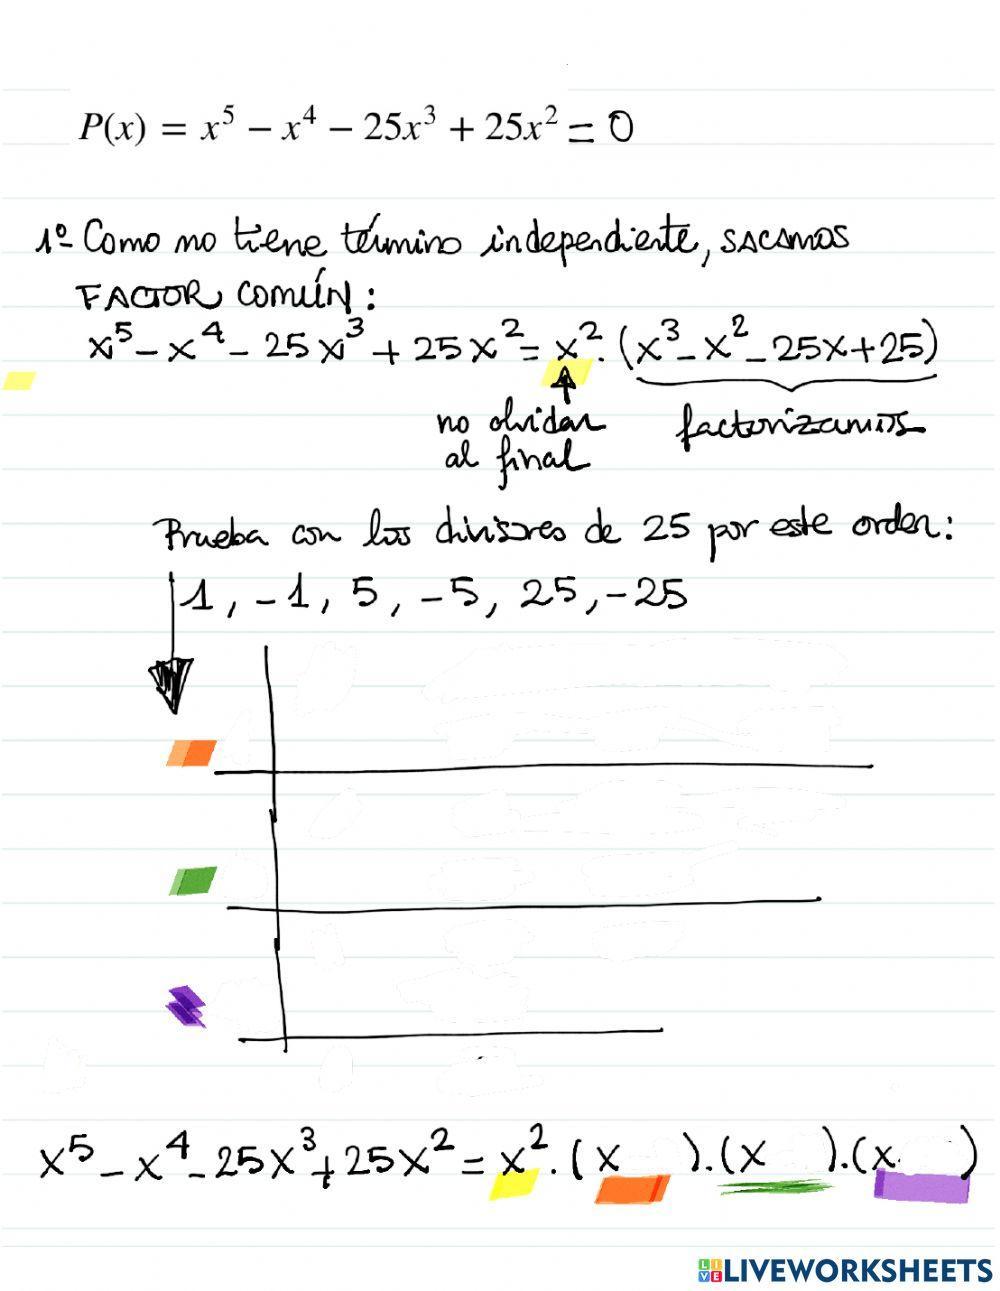 P(x) = x⁵ − x⁴ − 25x³ + 25x² = 0
1º Como no tiene término independiente, SACAMOS
FACTOR COMÚN:
x⁵ - x⁴ - 25x³ + 25x² = x² · (x³ - x² - 25x + 25)
no olvidar
al final
factorizamos
Prueba con los divisores de 25 por este orden:
1, -1, 5, -5, 25, -25
x⁵ - x⁴ - 25x³ + 25x² = x² · (x ) · (x ) · (x )
LIVEWORKSHEETS